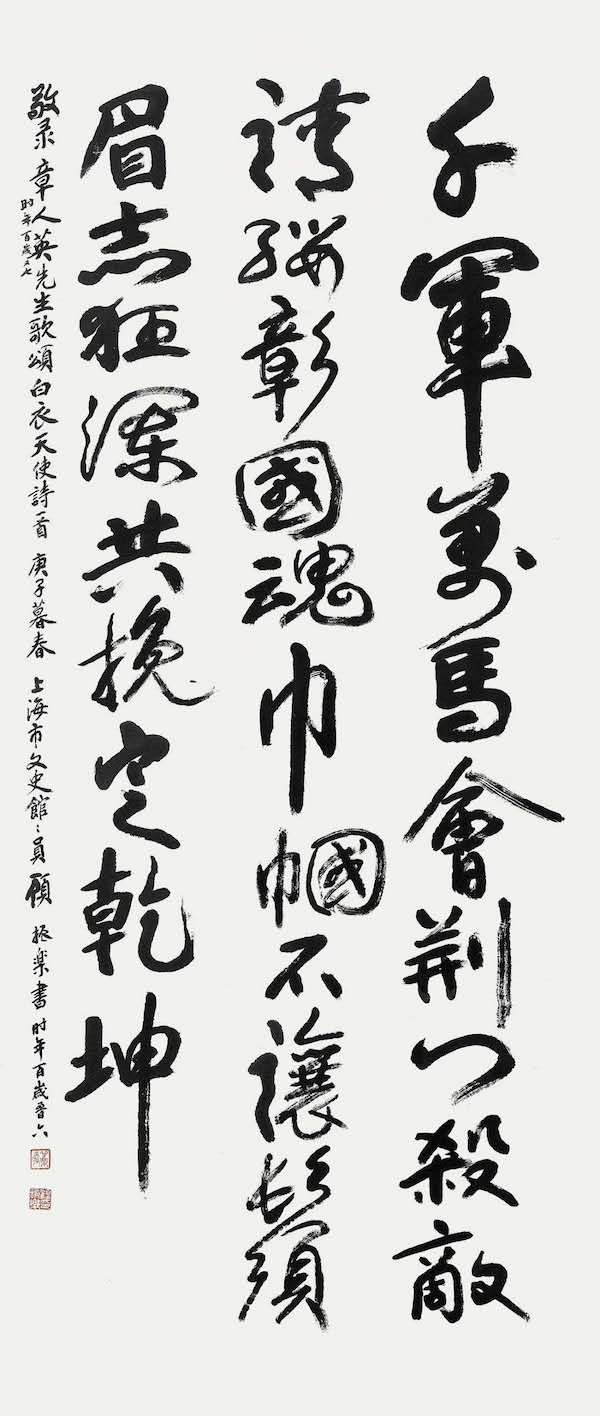 千軍萬馬會荆门殺敵
請纓彰國魂巾幗不讓鬚
眉志狂瀾共挽定乾坤
敬录章人英先生歌頌白衣天使詩一首 庚子暮春 上海市文史館〻員顧振樂書时年百歲晋六
时年百歲又七